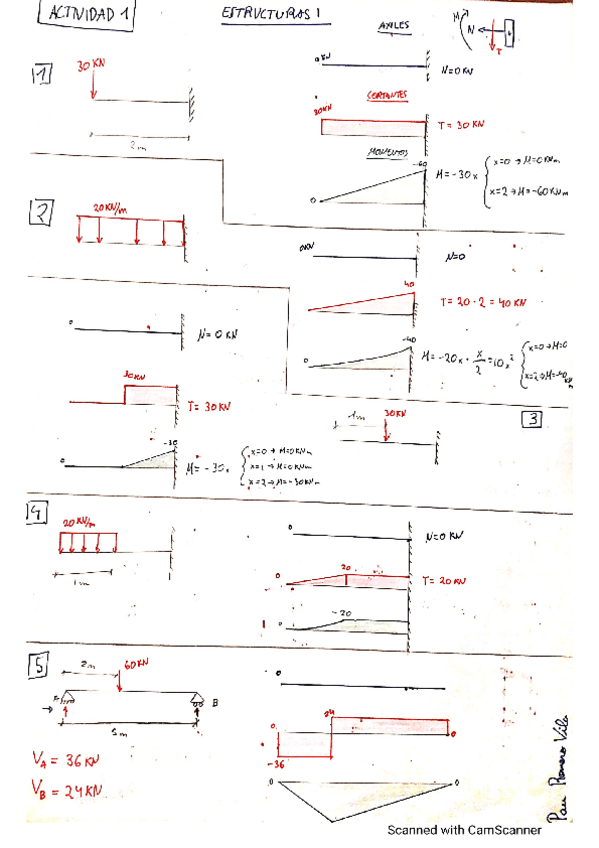 ACTIVIDAD 1
ESTRUCTURAS 1
M
N
T
AXILES
0KN
N=0KN
1
30 KN
2m
CORTANTES
T= 30 KN
MOMENTOS
-60
0
M=-30x
x=0 → M=0KNm
x=2 → M=-60KNm
2
20 KN/m
0KN
N=0
40
T= 20·2 = 40 KN
-40
0
M= -20x · x/2 = 10x²
x=0 → M=0
x=2 → M=-40 KN
0
N= 0 KN
30KN
T= 30KN
-30
0
M= -30x
x=0 → M=0KNm
x=1 → M=0KNm
x=2 → M=-30KNm
3
1m
30KN
4
20 KN/m
1m
0
N=0 KN
0
20
T= 20KN
0
-20
5
2m
60KN
A
B
5m
VA = 36 KN
VB = 24 KN
0
0
24
-36
0
0
0
Pau Romero Vila
Scanned with CamScanner